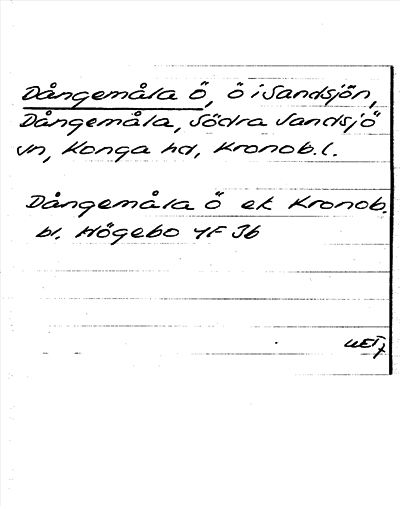 Dångemåla Ö, Ö i Sandsjön,
Dångemåla, Södra Sandsjö
sn, Konga hd, Kronob. l.
Dångemåla Ö ek Kronob.
bl. Högebo 4F 3b